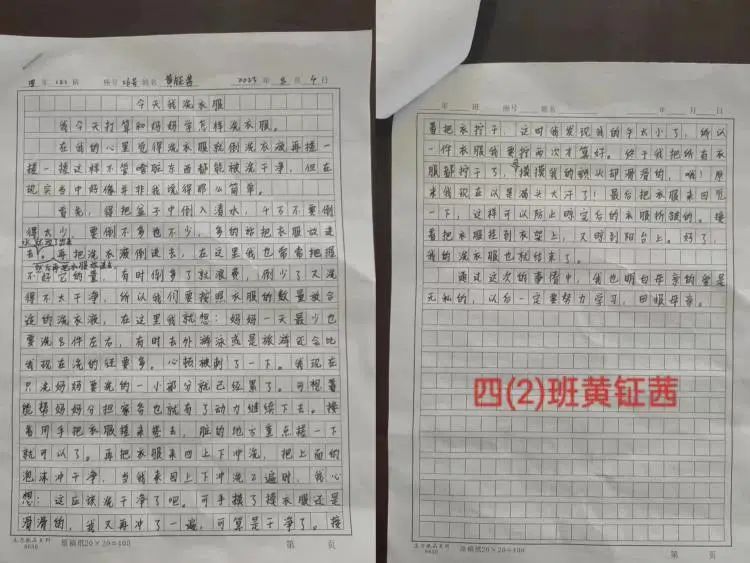 四年(2)班 座号 26号 姓名 黄钲茜 2023年 5月 4日
今天我洗衣服
我今天打算和妈妈学怎样洗衣服。
在我的心里觉得洗衣服就倒洗衣液再搓一
搓一搓这样不管啥脏东西都能被洗干净，但在
现实当中好像并非我说得那么简单。
首先，得把盆子中倒入清水，千万不要倒
得太少，要倒不多也不少，多的话把衣服放进
去，水就溢了出来
再把洗衣液倒进去，在这里我也常常把握
不好它的量，有时倒多了就浪费，倒少了又洗
得不太干净，所以我们要按照衣服的数量放合
适的洗衣液，在这里我就想：妈妈一天最少也
要洗8件左右，有时去外游泳或是旅游还会比
我现在洗的还要多。心顿被刺了一下。我现在
只洗妈妈要洗的一小部分就已经累了。可想着
能帮妈妈分担家务也就有了动力继续下去。接
着用手把衣服搓来搓去，脏的地方重点搓一下
就可以了。再把衣服来回上下冲洗，把上面的
泡沫冲干净，当我来回上下冲洗了遍时，我心
想：这应该洗干净了吧。可手摸了摸衣服还是
滑滑的，我又再冲了一遍，可算是干净了。接
原稿纸20×20=400
第 页
年 班 座号 姓名 年 月 日
着把衣拧干，这时我发现我的手太小了，所以
一件衣服我要拧两次才算好。终于我把所有衣
服都拧干了，摸摸我的额头却滑滑的，哦！原
来我现在以是满头大汗了！最后把衣服来回甩
一下，这样可以防止晾完后的衣服皱皱的。接
着把衣服挂到衣架上，又晾到阳台上。好了，
我的洗衣服也就结束了。
通过这次的事情中，我也明白母亲的爱是
无私的，以后一定要努力学习，回报母亲。
四(2)班黄钲茜
原稿纸20×20=400
第 页